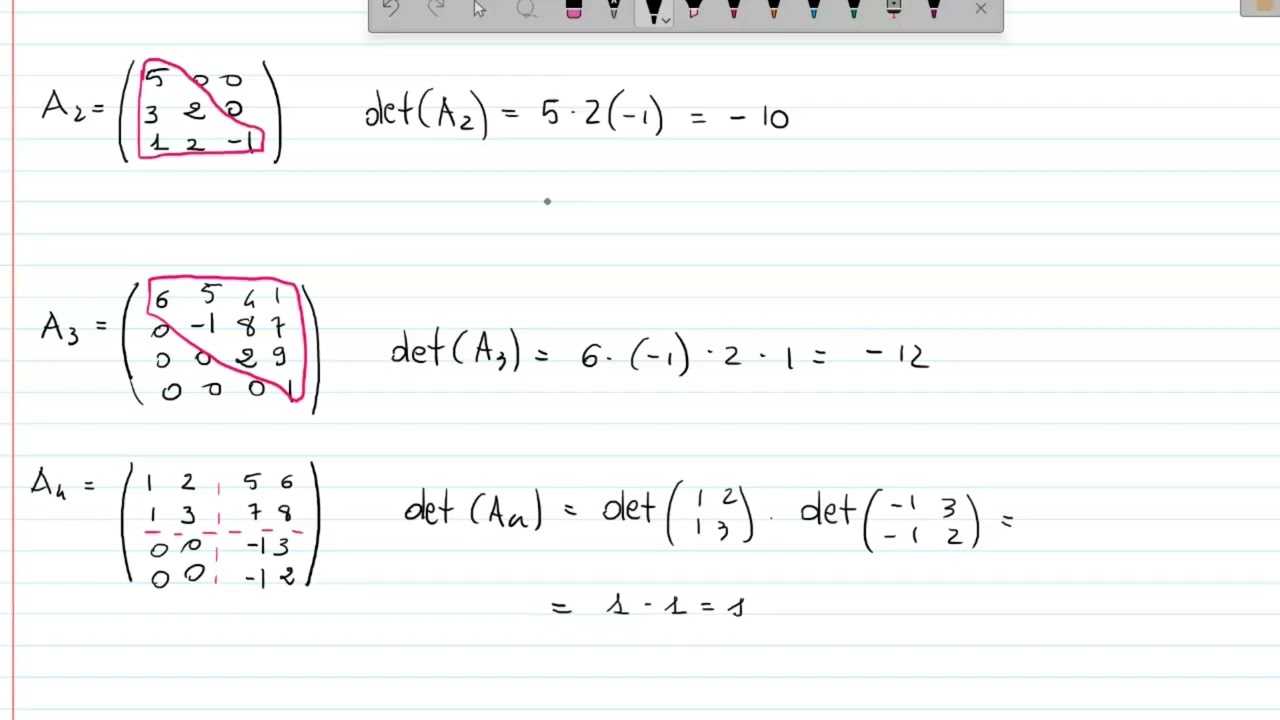 A₂ = ( 5 0 0
3 2 0
1 2 -1 ) det(A₂) = 5 · 2(-1) = -10
A₃ = ( 6 5 4 1
0 -1 8 7
0 0 2 9
0 0 0 1 ) det(A₃) = 6 · (-1) · 2 · 1 = -12
A₄ = ( 1 2 5 6
1 3 7 8
0 0 -1 3
0 0 -1 2 ) det(A₄) = det( 1 2
1 3 ) · det( -1 3
-1 2 ) =
= 1 · 1 = 1